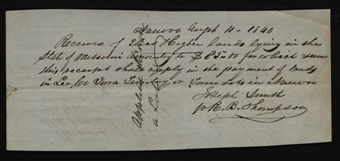 Nauvoo Augst 11 - 1840
Received of Isaac Higbee lands lying in the
State of Missouri Amounting to $85.00 for which sum
this receipt shall apply in the payment of lands
in Lee Co Iowa Territory or Town lots in Nauvoo
Joseph Smith
R. B. Thompson